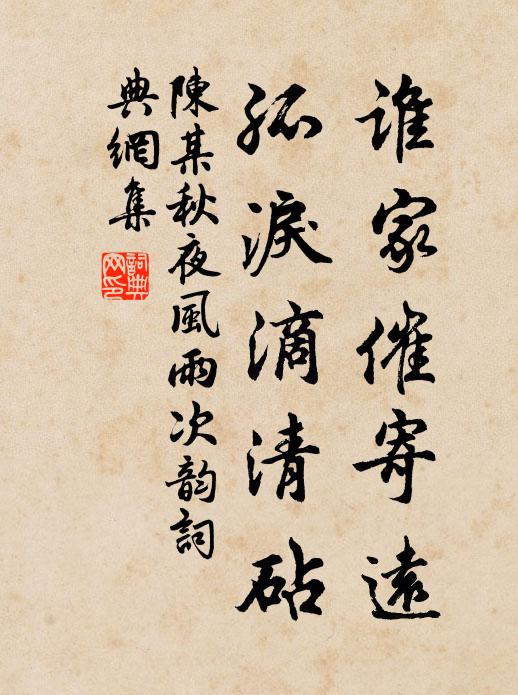 誰家催寄遠
孤淚滴清砧
陳某秋夜風雨次韵詞
典網集
詞典网印